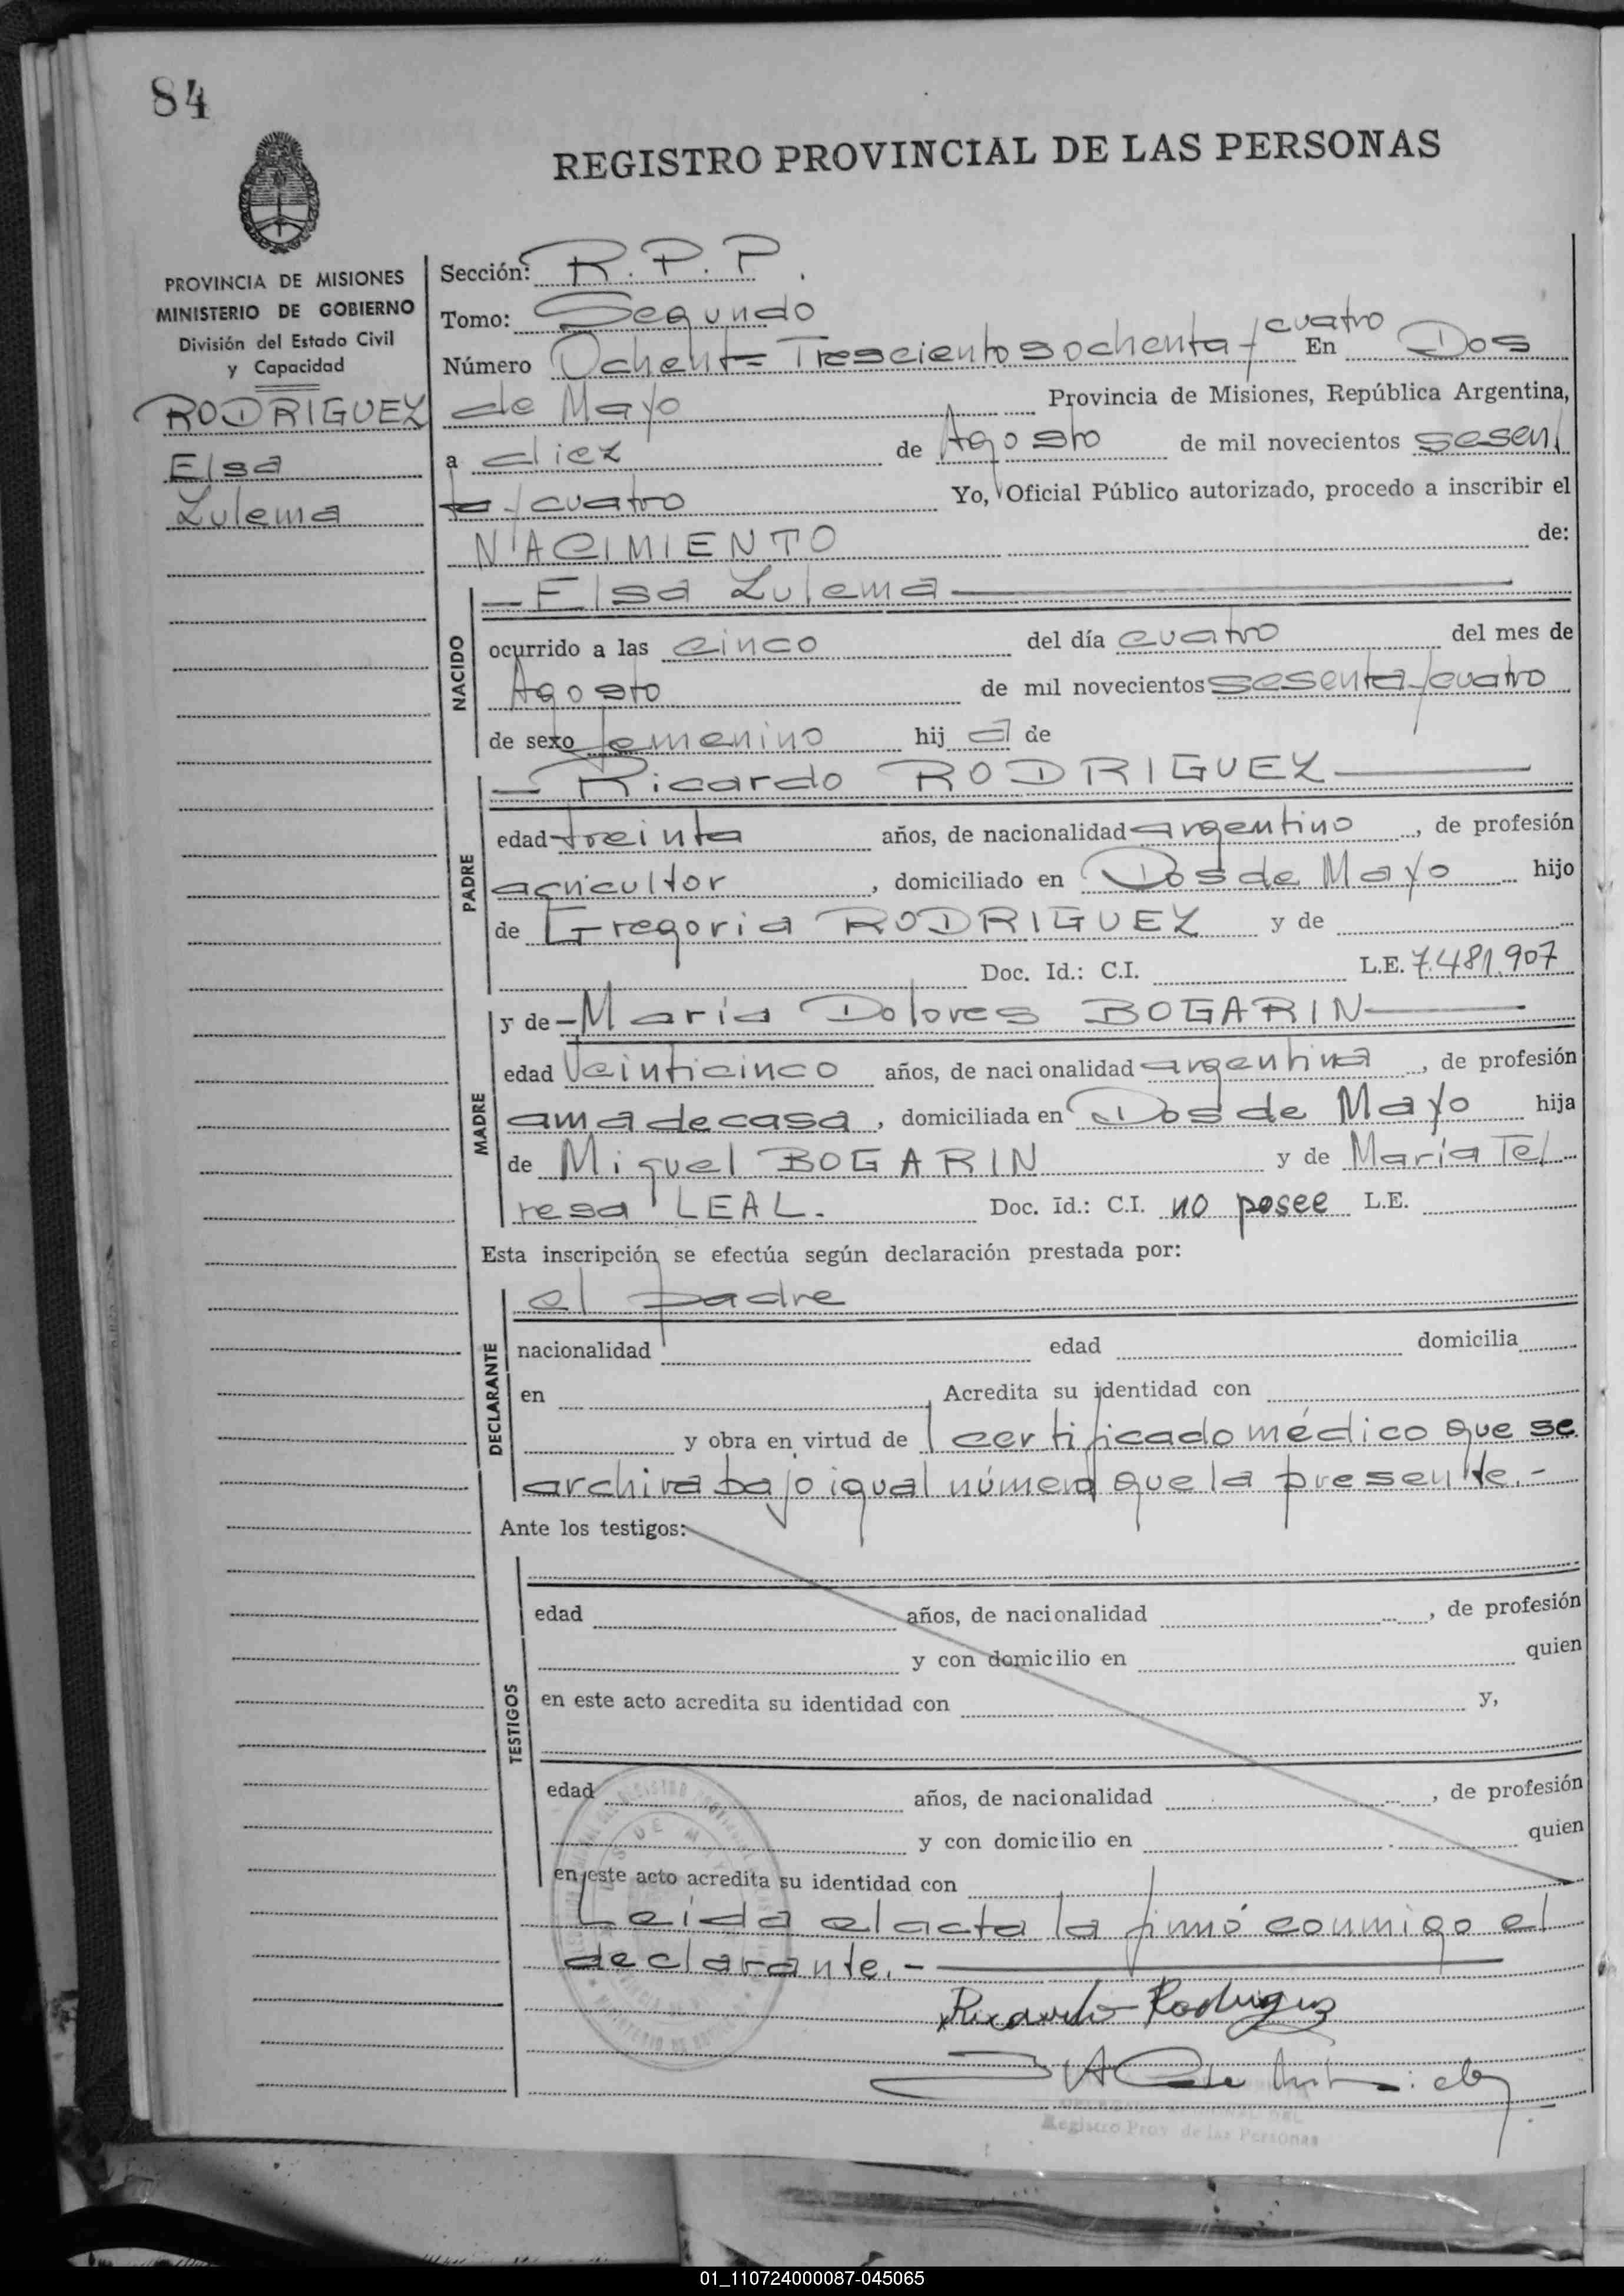 84
REGISTRO PROVINCIAL DE LAS PERSONAS
PROVINCIA DE MISIONES
MINISTERIO DE GOBIERNO
División del Estado Civil
y Capacidad
RODRIGUEZ
Elsa
Zulema
Sección: R. P. P.
Tomo: Segundo
Número Trescientos ochenta y cuatro En Dos
de Mayo Provincia de Misiones, República Argentina,
a diez de Agosto de mil novecientos sesen
ta y cuatro Yo, Oficial Público autorizado, procedo a inscribir el
NACIMIENTO de:
NACIDO
Elsa Zulema
ocurrido a las cinco del día cuatro del mes de
Agosto de mil novecientos sesenta y cuatro
de sexo femenino hij a de
PADRE
Ricardo RODRIGUEZ
edad treinta años, de nacionalidad argentino, de profesión
agricultor, domiciliado en Dos de Mayo hijo
de Gregoria RODRIGUEZ y de
Doc. Id.: C.I. L.E. 7.481.907
MADRE
y de María Dolores BOGARIN
edad veinticinco años, de nacionalidad argentina, de profesión
ama de casa, domiciliada en Dos de Mayo hija
de Miguel BOGARIN y de María Te
resa LEAL. Doc. Id.: C.I. no posee L.E.
Esta inscripción se efectúa según declaración prestada por:
DECLARANTE
el padre
nacionalidad edad domicilia
en Acredita su identidad con
y obra en virtud de certificado médico que se
archiva bajo igual número que la presente.-
Ante los testigos:
TESTIGOS
edad años, de nacionalidad, de profesión
y con domicilio en quien
en este acto acredita su identidad con y,
edad años, de nacionalidad, de profesión
y con domicilio en quien
en este acto acredita su identidad con
Leída el acta la firmó conmigo el
declarante.-
Ricardo Rodriguez
Registro Prov de las Personas
01_110724000087-045065